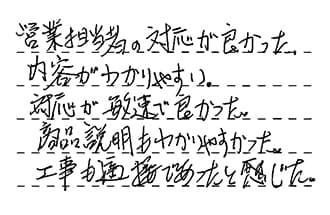 営業担当者の対応が良かった。
内容がわかりやすい。
対応が敏速で良かった。
商品説明もわかりやすかった。
工事も適切であったと感じた。